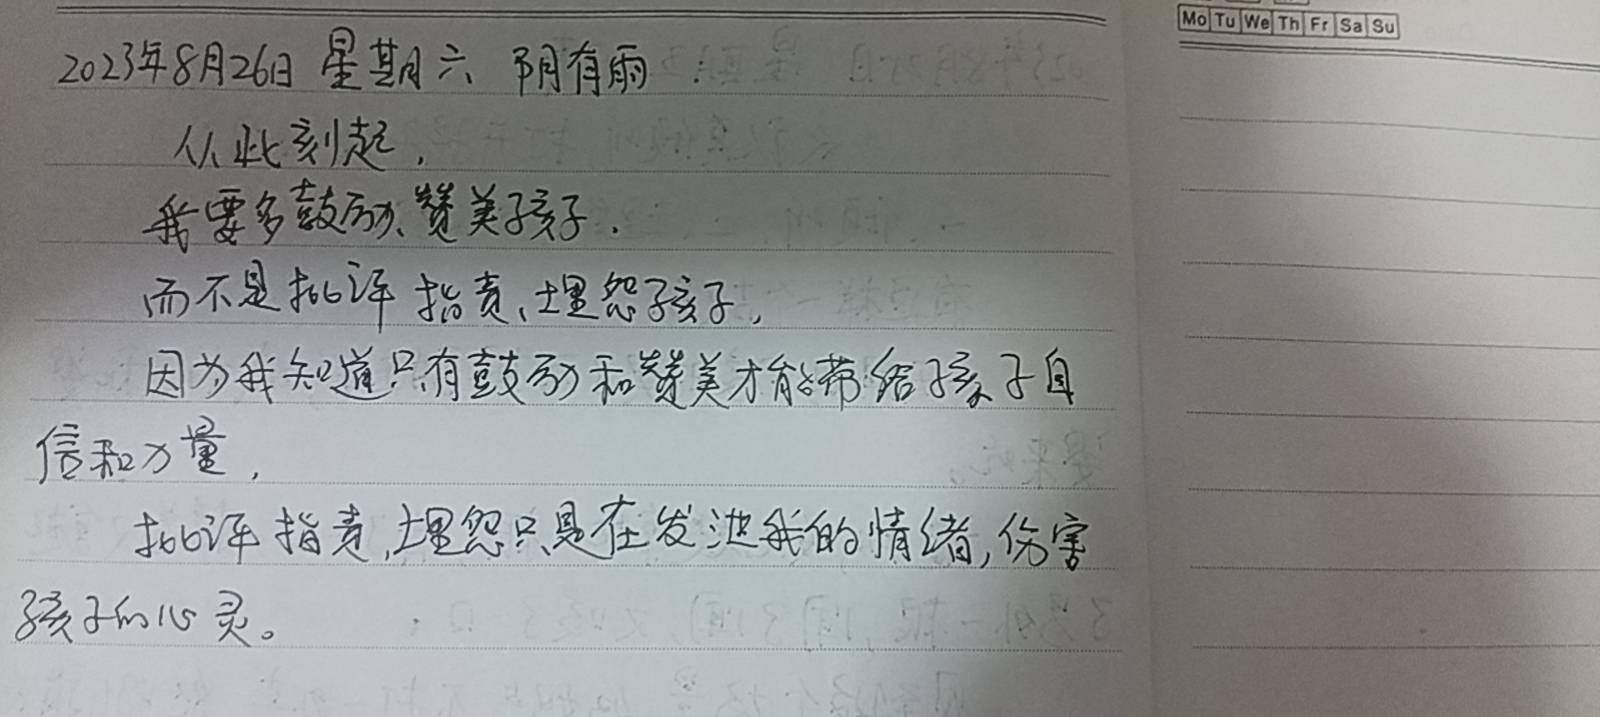 Mo Tu We Th Fr Sa Su
2023年8月26日 星期六 阴有雨
从此刻起,
我要多鼓励、赞美孩子.
而不是批评 指责、埋怨孩子,
因为我知道只有鼓励和赞美才能带给孩子自
信和力量,
批评指责,埋怨只是在发泄我的情绪,伤害
孩子的心灵。